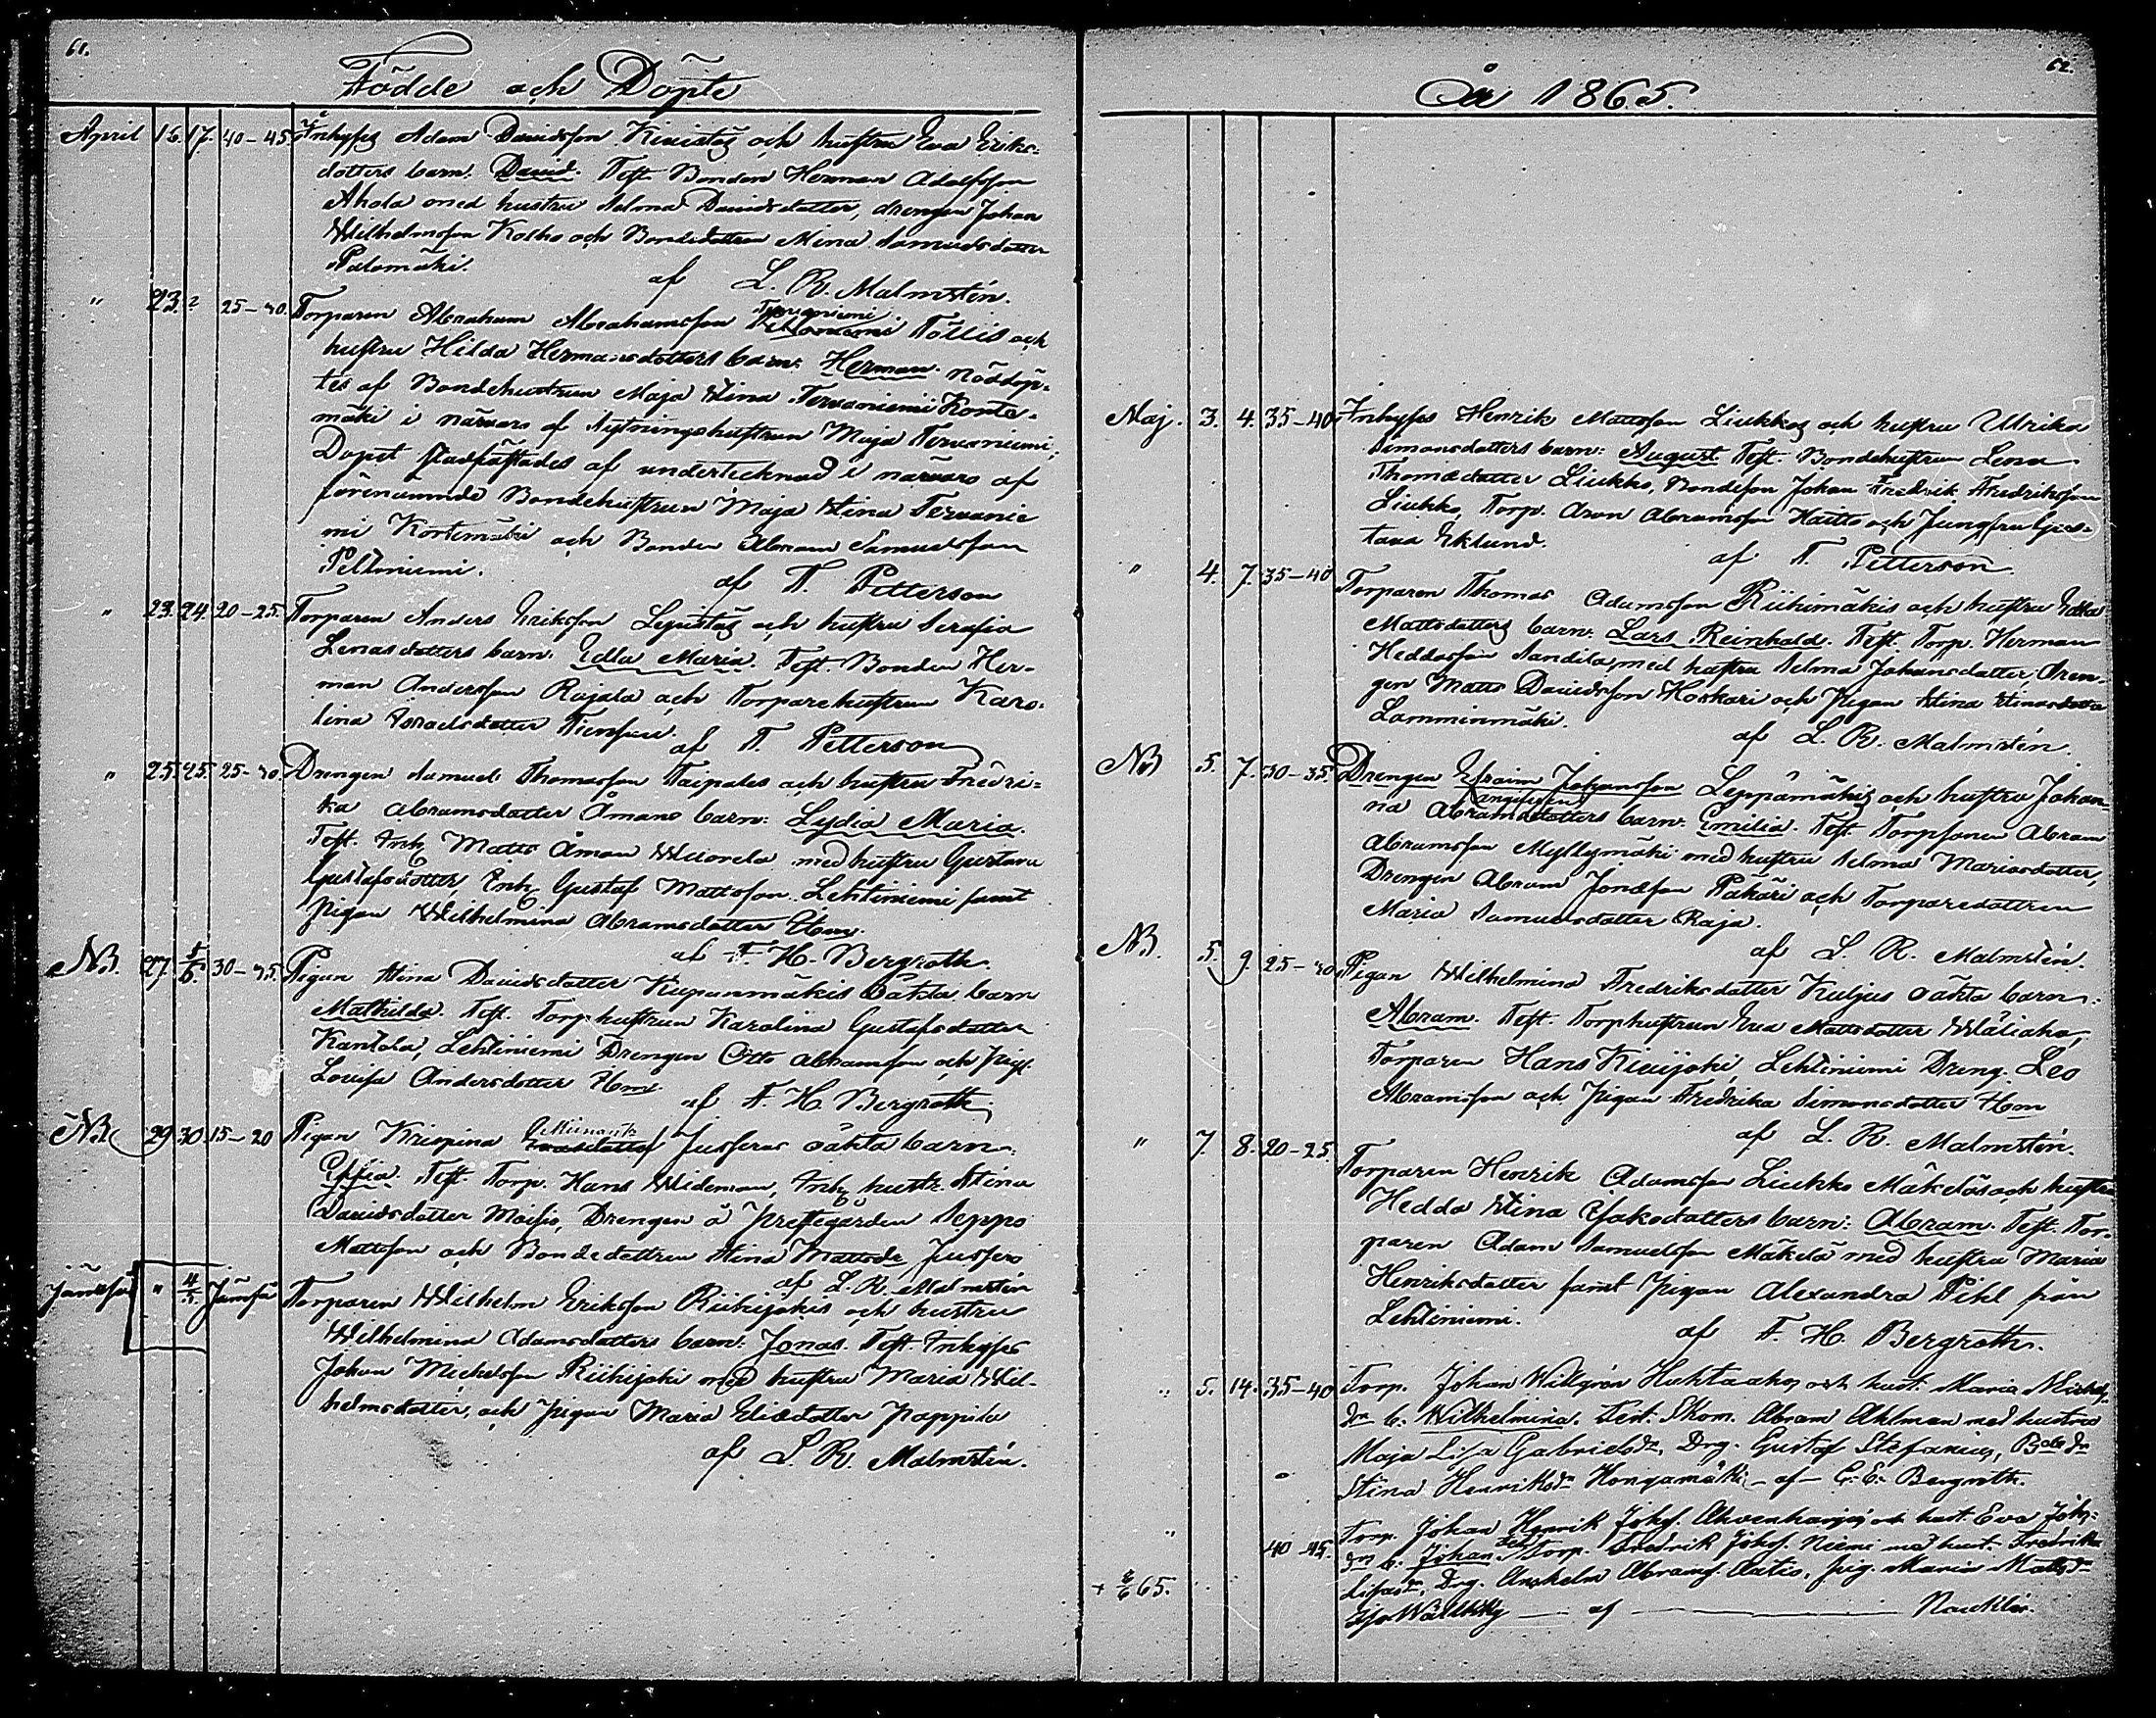 61.
Födde och Döpte
April 16. 17. 40–45. Inhyses Adam Davidsson Kivistös och hustru Eva Eriks-
dotters barn. David. Test. Bonden Herman Adolfsson
Ahola med hustru Selma Davidsdotter, drengen Johan
Wilhelmsson Kosko och Bondedottren Mina Samuelsdotter
Palomäki.
af L. R. Malmstén.
" 23. ? 25–30. Torparen Abraham Abrahamsson Tervaniemi Töllis och
hustru Hilda Hermansdotters barn: Herman. nöddöp-
tes af Bondehustrun Maja Stina Tervaniemi Konte-
mäki i närvaro af Sytningshustrun Maja Tervaniemi;
Dopet stadfästades af undertecknad i närvaro af
förenämnde Bondehustrun Maja Stina Tervanie
mi Kortemäki och Bonden Abram Samuelsson
Peltoniemi.
af T. Petterson
" 23. 24. 20–25. Torparen Anders Eriksson Lejustös och hustru Serafia
Lenasdotters barn. Edla Maria. Test. Bonden Her-
man Andersson Rajala och Torparehustrun Karo-
lina Israelsdotter
af T. Petterson
" 25. 25. 25–30. Drengen Samuel Thomasson Taipales och hustru Fredri-
ka Abramsdotter Åmans barn: Lydia Maria.
Test. Inh. Matts Åman Wuorela med hustru Gustava
Gustafsdotter, Inh. Gustaf Mattsson Lehtiniemi samt
pigan Wilhelmina Abramsdotter
af F. H. Bergroth.
NB. 27. 1/5. 30–35. Pigan Stina Davidsdotter Kupanmäkis oäkta barn
Mathilda. Test. Torphustrun Karolina Gustafsdotter
Kantola, Lehtiniemi Drengen Otto Abramsson och pig.
Lovisa Andersdotter Ibm.
af F. H. Bergroth
NB 29 30 15–20 Pigan Krispina Jusseras oäkta barn:
Effia. Test. Torp. Hans Wideman, Inh. hustr. Stina
Davidsdotter Moisio, Drengen å Prestegården Seppo
Mattsson och Bondedottren Stina Mattsdr Jussero
af L. R. Malmstén
Jämsjä " 4/5. Jämsä Torparen Wilhelm Eriksson Riihijokis och hustru
Wilhelmina Adamsdotters barn: Jonas. Test. Inhyses
Johan Michelsson Riihijoki med hustru Maria Wil-
helmsdotter, och pigan Maria Eliedotter Pappila
af L. R. Malmstén.
62.
År 1865.
Maj. 3. 4. 35–40. Inhyses Henrik Mattsson Liukkos och hustru Ulrika
Simonsdotters barn: August. Test. Bondehustrun Lena
Thomasdotter Liukko, Bondeson Johan Fredrik Fredriksson
Liukko, Torp. Aron Abramsson Hautto och Jungfru Gus-
tava Eklund.
af T. Petterson.
" 4. 7. 35–40 Torparen Thomas Adamsson Riihimäkis och hustru Edla
Mattsdotters barn: Lars Reinhold. Test. Torp. Herman
Heddasson Sandila, med hustru Selma Johansdotter, Dren-
gen Matts Davidsson Koskari och Pigan Stina Stinasdotter
Lamminmäki.
af L. R. Malmstén.
NB 5. 7. 30–35. Drengen Efraim Johansson Leppämäkis och hustru Johan-
na Abramsdotters barn. Emilia. Test. Torpsonen Abram
Abramsson Myllymäki med hustru Selma Mariasdotter,
Drengen Abram Jonasson Pakäri och Torparedottren
Maria Samuelsdotter Raja.
af L. R. Malmstén.
NB. 5. 9. 25–30 Pigan Wilhelmina Fredriksdotter Kuljus oäkta barn:
Abram. Test. Torphustrun Eva Mattsdotter Wäliaho,
Torparen Hans Kivijoki, Lehtiniemi Dreng. Leo
Abramsson och Pigan Fredrika Simonsdotter Ibm
af L. R. Malmstén.
" 7. 8. 20–25. Torparen Henrik Adamsson Liukko Mäkeläs och hustru
Hedda Stina Isaksdotters barn: Abram. Test. Tor-
paren Adam Samuelsson Mäkelä med hustru Maria
Henriksdotter samt pigan Alexandra Pihl från
Lehtiniemi.
af F. H. Bergroth.
" 5. 14. 35–40 Torp. Johan Willgrén Huhtaahos och hust. Maria Michels
dr b: Wilhelmina. Test: Skom. Abram Ahlman med hustru
Maja Lisa Gabrielsdr, Drg. Gustaf Stefanius, Bdedr
Stina Henriksdr Hongamäki – af – C. E. Bergroth.
" 40–45. Torp. Johan Henrik Johss. Ahvenharjus och hust. Eva Johs-
dr b. Johan. Test. Torp. Fredrik Johss. Niemi med hust. Fredrika
Lisasdr, Drg. Anshelm Abramss. Autio, pig. Maria Mattsdr
+ 8/6 65. Iso Wälikky — af — Naeklér.